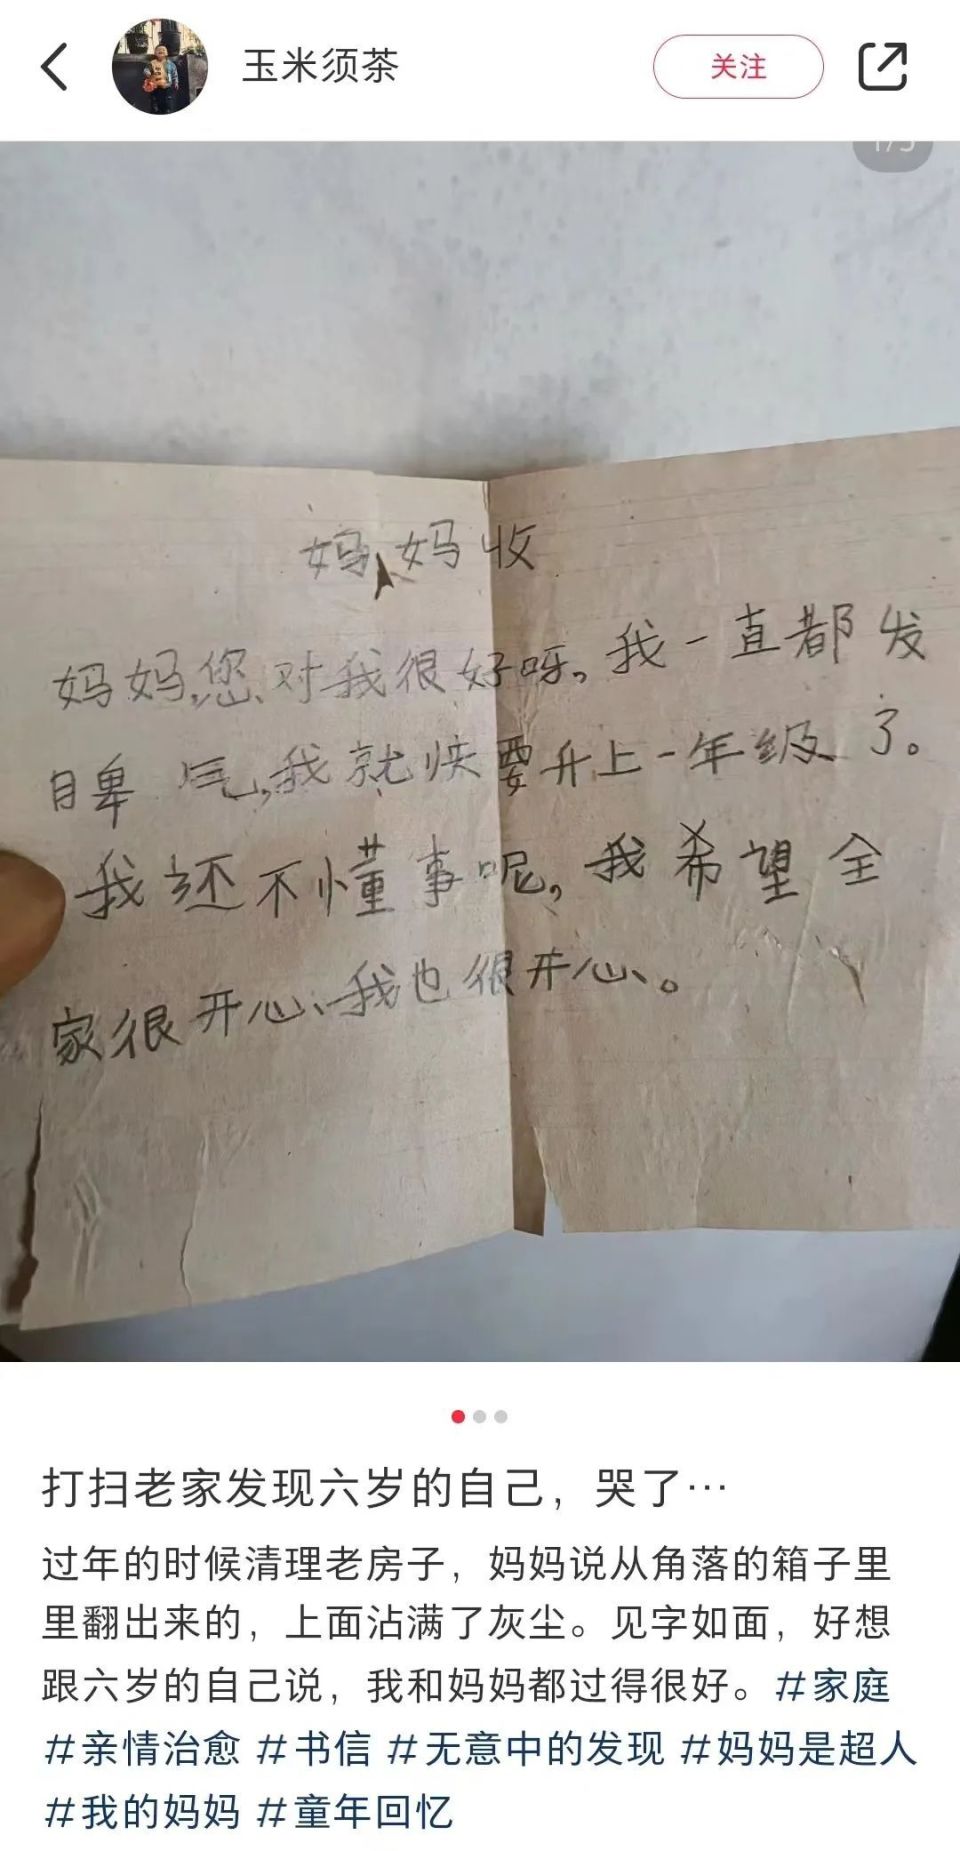 玉米须茶
关注
1/3
妈妈收
妈妈,您对我很好呀。我一直都发
月卑气,我就快要升上一年级了。
我还不懂事呢,我希望全
家很开心、我也很开心、。
打扫老家发现六岁的自己，哭了…
过年的时候清理老房子，妈妈说从角落的箱子里
里翻出来的，上面沾满了灰尘。见字如面，好想
跟六岁的自己说，我和妈妈都过得很好。#家庭
#亲情治愈 #书信 #无意中的发现 #妈妈是超人
#我的妈妈 #童年回忆